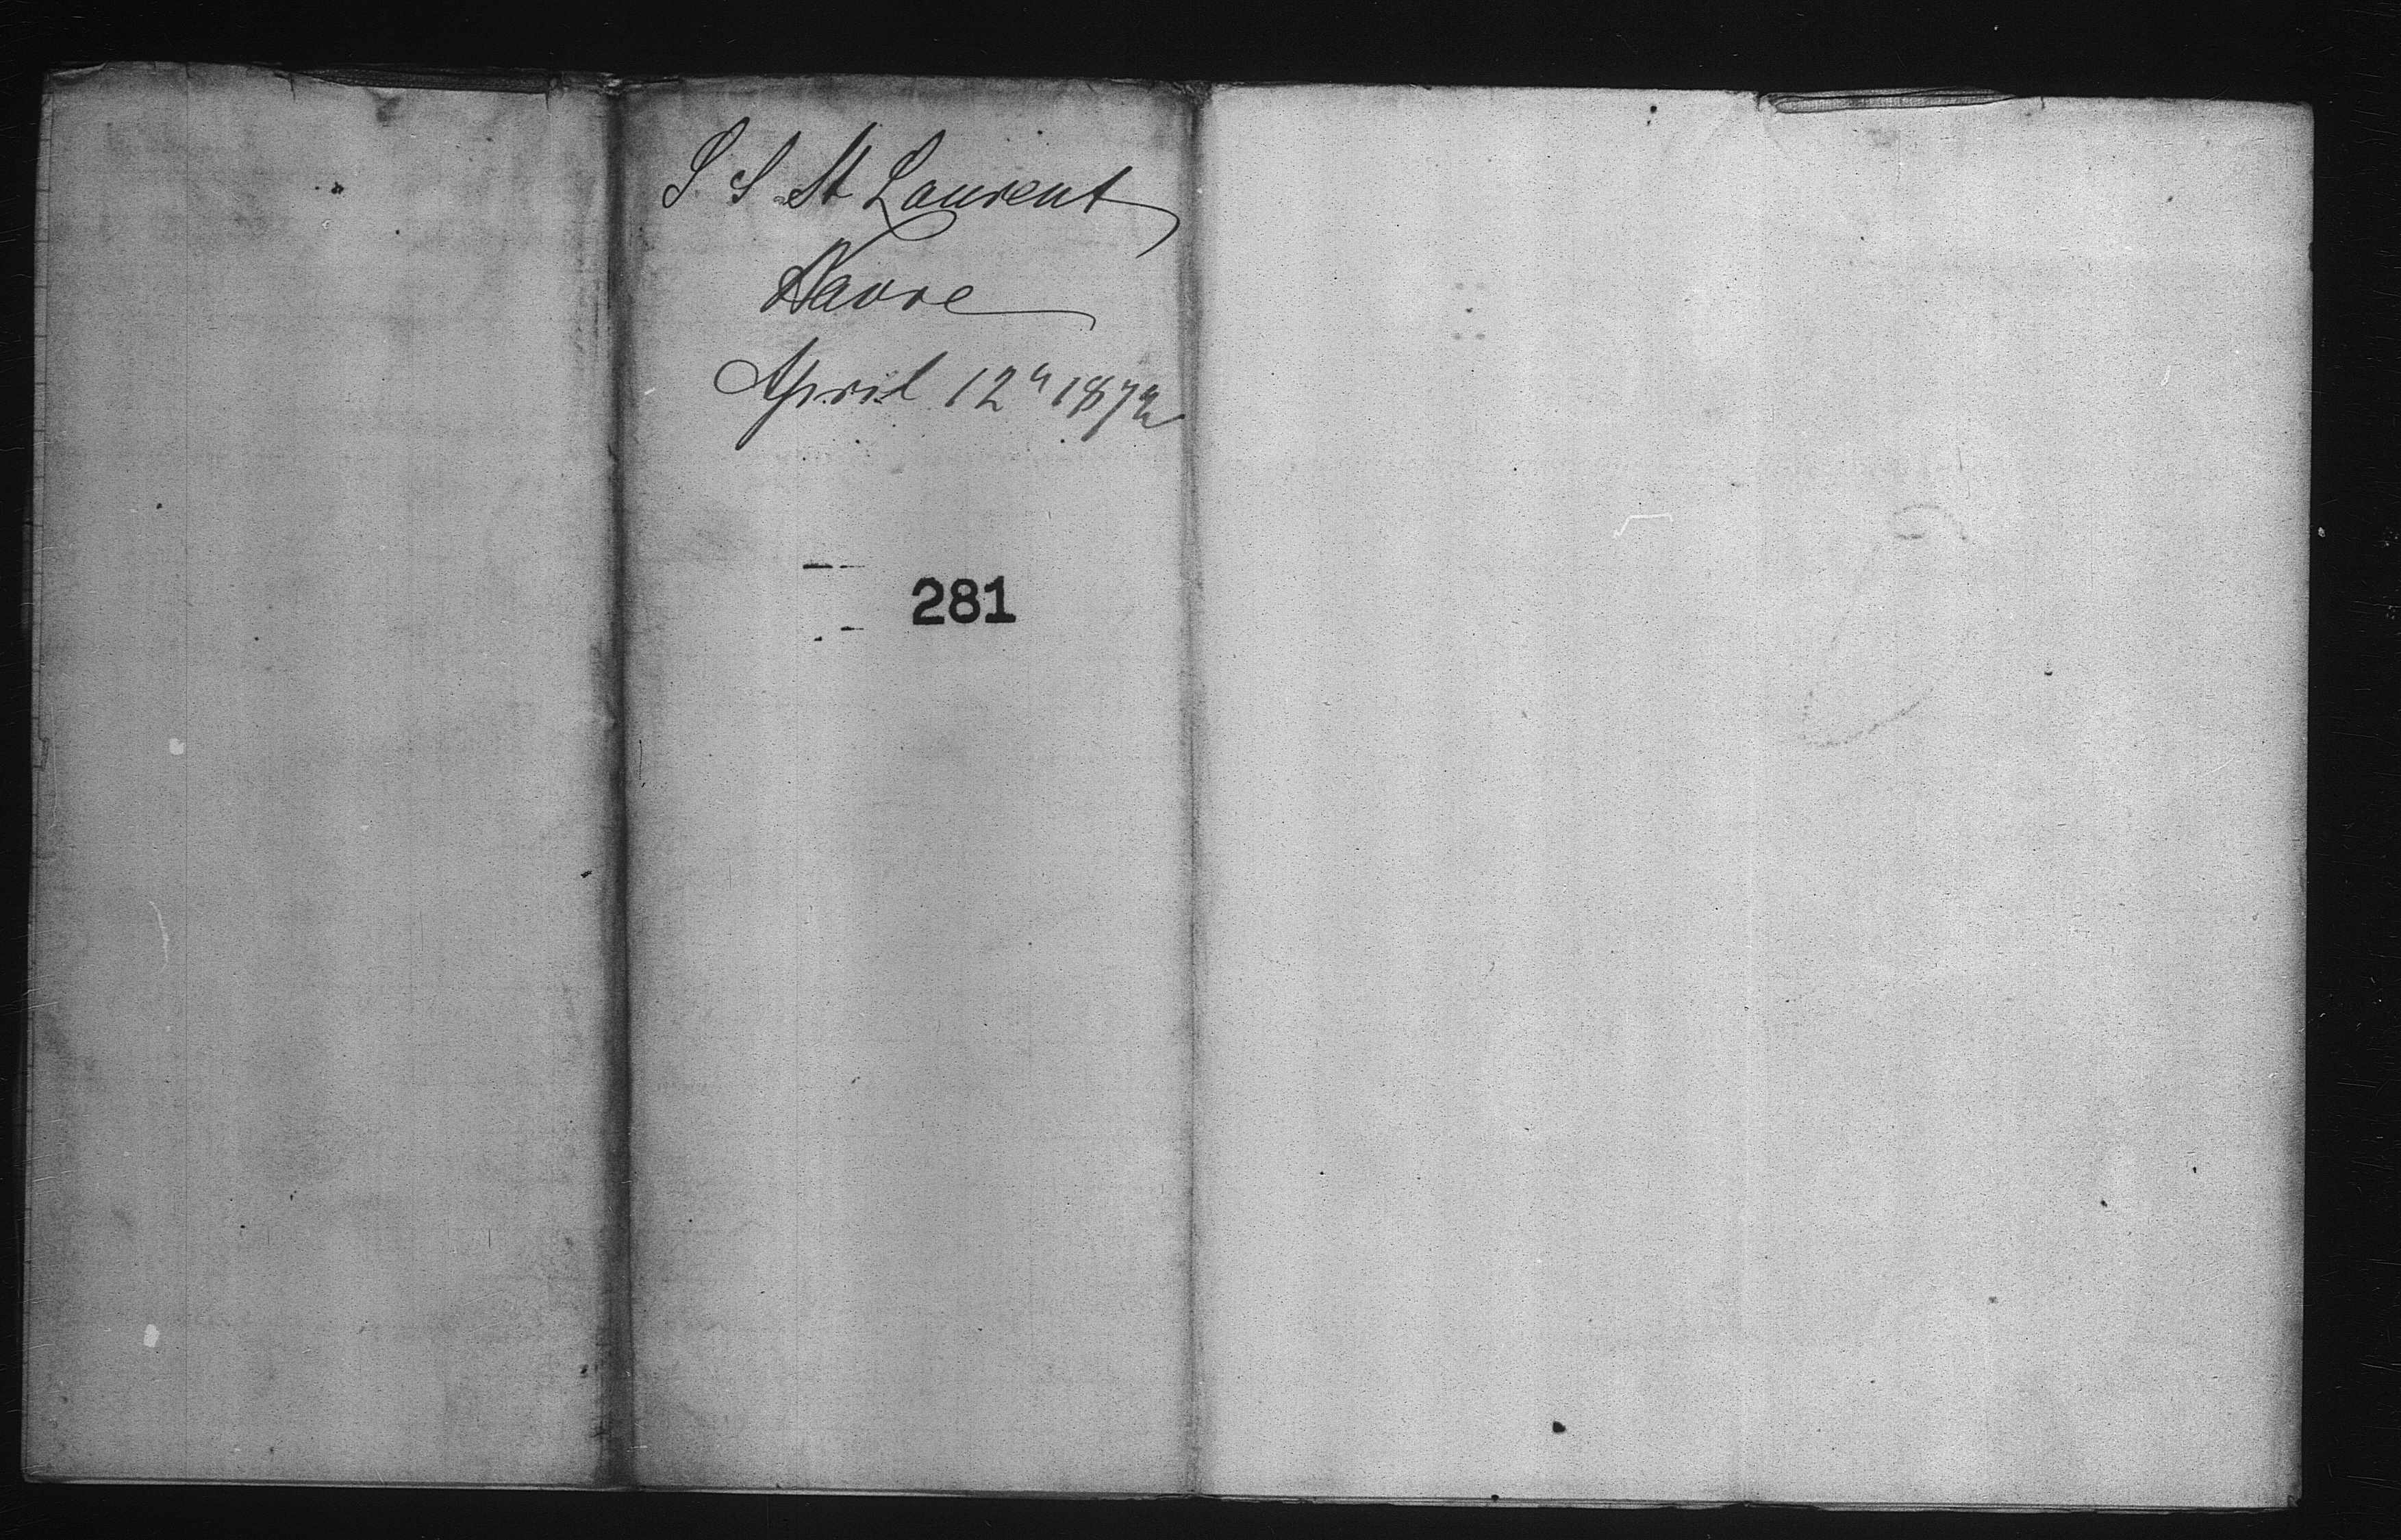 S. S. St Laurent
Havre
April 12" 1872
281